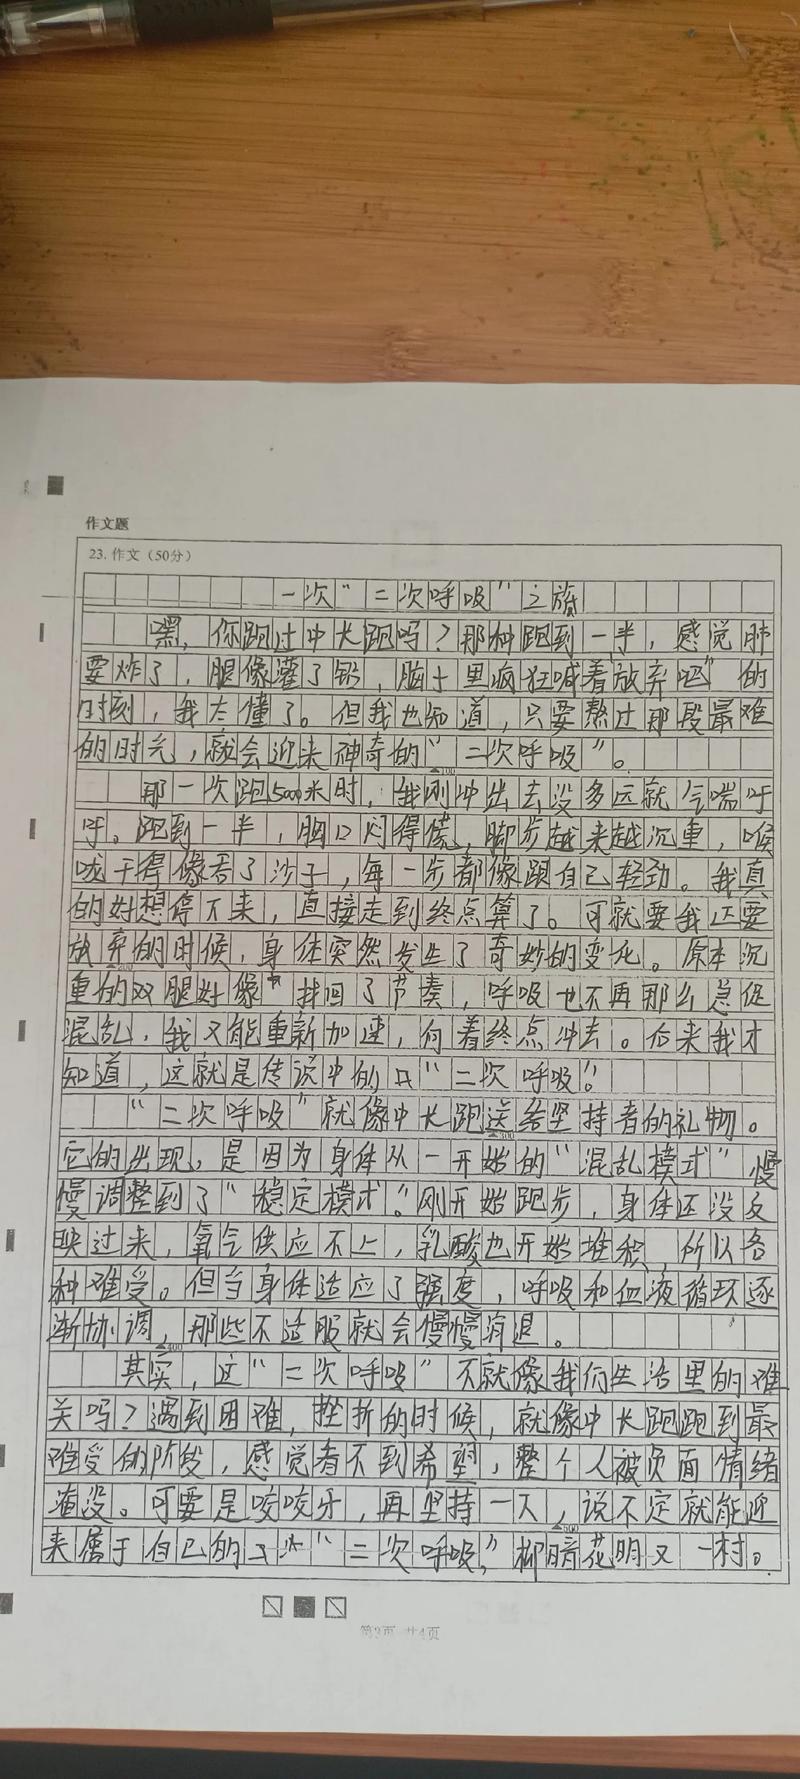 作文题
23. 作文（50分）
一次“二次呼吸”之旅
嘿，你跑过中长跑吗？那种跑到一半，感觉肺
要炸了，腿像灌了铅，脑子里疯狂喊着放弃吧”的
时刻，我太懂了。但我也知道，只要熬过那段最难
的时光，就会迎来神奇的“二次呼吸”。
那一次跑5000米时，我刚冲出去没多远就气喘吁
吁。跑到一半，胸口闷得慌，脚步越来越沉重，喉
咙干得像吞了沙子，每一步都像跟自己较劲。我真
的好想停下来，直接走到终点算了。可就要我还要
放弃的时候，身体突然发生了奇妙的变化。原本沉
重的双腿好像找回了节奏，呼吸也不再那么急促
混乱，我又能重新加速，向着终点冲去。后来我才
知道，这就是传说中的“二次呼吸”。
“二次呼吸”就像中长跑送给坚持者的礼物。
它的出现，是因为身体从一开始的“混乱模式”慢
慢调整到了“稳定模式”。刚开始跑步，身体还没反
映过来，氧气供应不上，乳酸也开始堆积，所以各
种难受。但当身体适应了强度，呼吸和血液循环逐
渐协调，那些不适服就会慢慢消退。
其实，这“二次呼吸”不就像我们生活里的难
关吗？遇到困难，挫折的时候，就像中长跑跑到最
难受的阶段，感觉看不到希望，整个人被负面情绪
淹没。可要是咬咬牙，再坚持一下，说不定就能迎
来属于自己的“二次呼吸，”柳暗花明又一村。
第3页 共4页